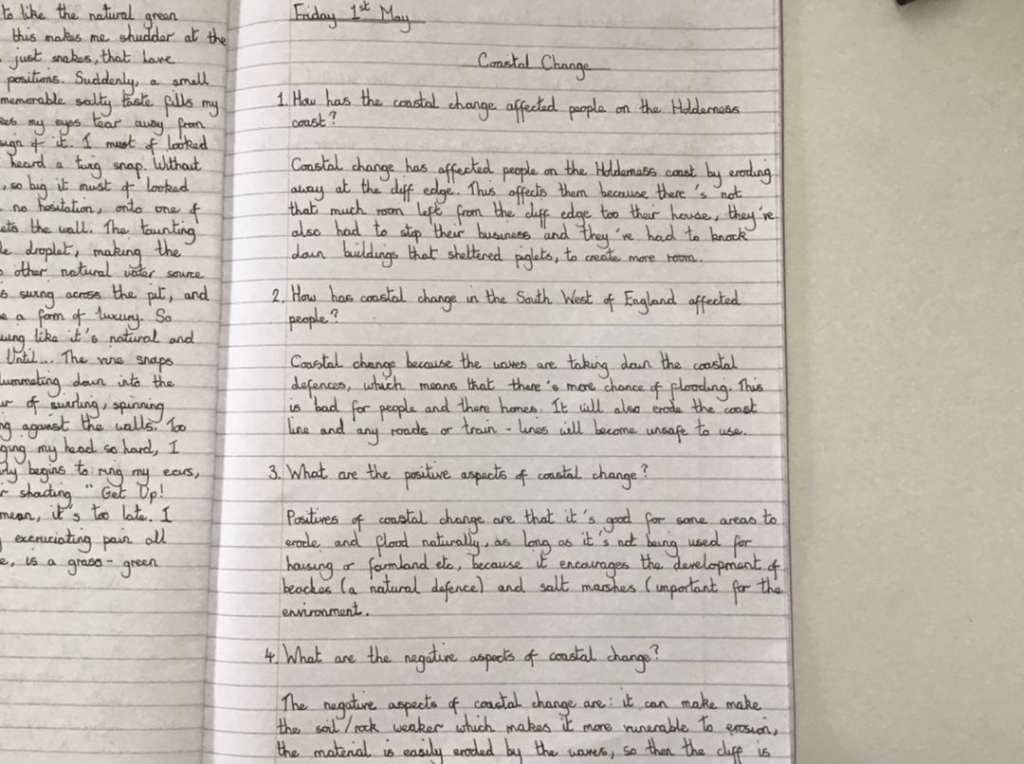 to like the natural green
this makes me shudder at the
just snakes, that have
positions. Suddenly, a small
memorable salty taste fills my
my eyes tear away from
sign of it. I must of looked
heard a twig snap. Without
, so big it must of looked
no hesitation, onto one of
the wall. The taunting
droplet, making the
other natural water source
swing across the pit, and
a form of luxury. So
like it's natural and
Until... The vine snaps
down into the
of swirling, spinning
against the walls. Too
my head so hard, I
begins to ring my ears,
shouting "Get Up!
mean, it's too late. I
excruciating pain all
, is a grass-green
Friday 1st May
Coastal Change
1. How has the coastal change affected people on the Holderness
coast?
Coastal change has affected people on the Holderness coast by eroding
away at the cliff edge. This affects them because there's not
that much room left from the cliff edge too their house, they're
also had to stop their business and they've had to knock
down buildings that sheltered piglets, to create more room.
2. How has coastal change in the South West of England affected
people?
Coastal change because the waves are taking down the coastal
defences, which means that there's more chance of flooding. This
is bad for people and there homes. It will also erode the coast
line and any roads or train-lines will become unsafe to use.
3. What are the positive aspects of coastal change?
Positives of coastal change are that it's good for some areas to
erode and flood naturally, as long as it's not being used for
housing or farmland etc, because it encourages the development of
beaches (a natural defence) and salt marshes (important for the
environment.
4. What are the negative aspects of coastal change?
The negative aspects of coastal change are: it can make make
the soil/rock weaker which makes it more vunerable to erosion,
the material is easily eroded by the waves, so then the cliff is